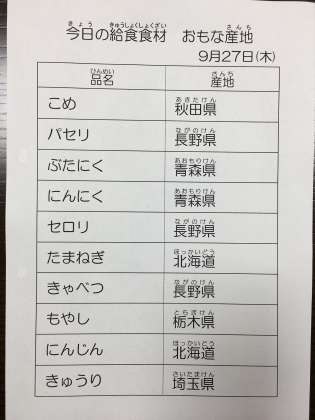 今日の給食食材 おもな産地
9月27日(木)
品名 産地
こめ 秋田県
パセリ 長野県
ぶたにく 青森県
にんにく 青森県
セロリ 長野県
たまねぎ 北海道
きゃべつ 長野県
もやし 栃木県
にんじん 北海道
きゅうり 埼玉県